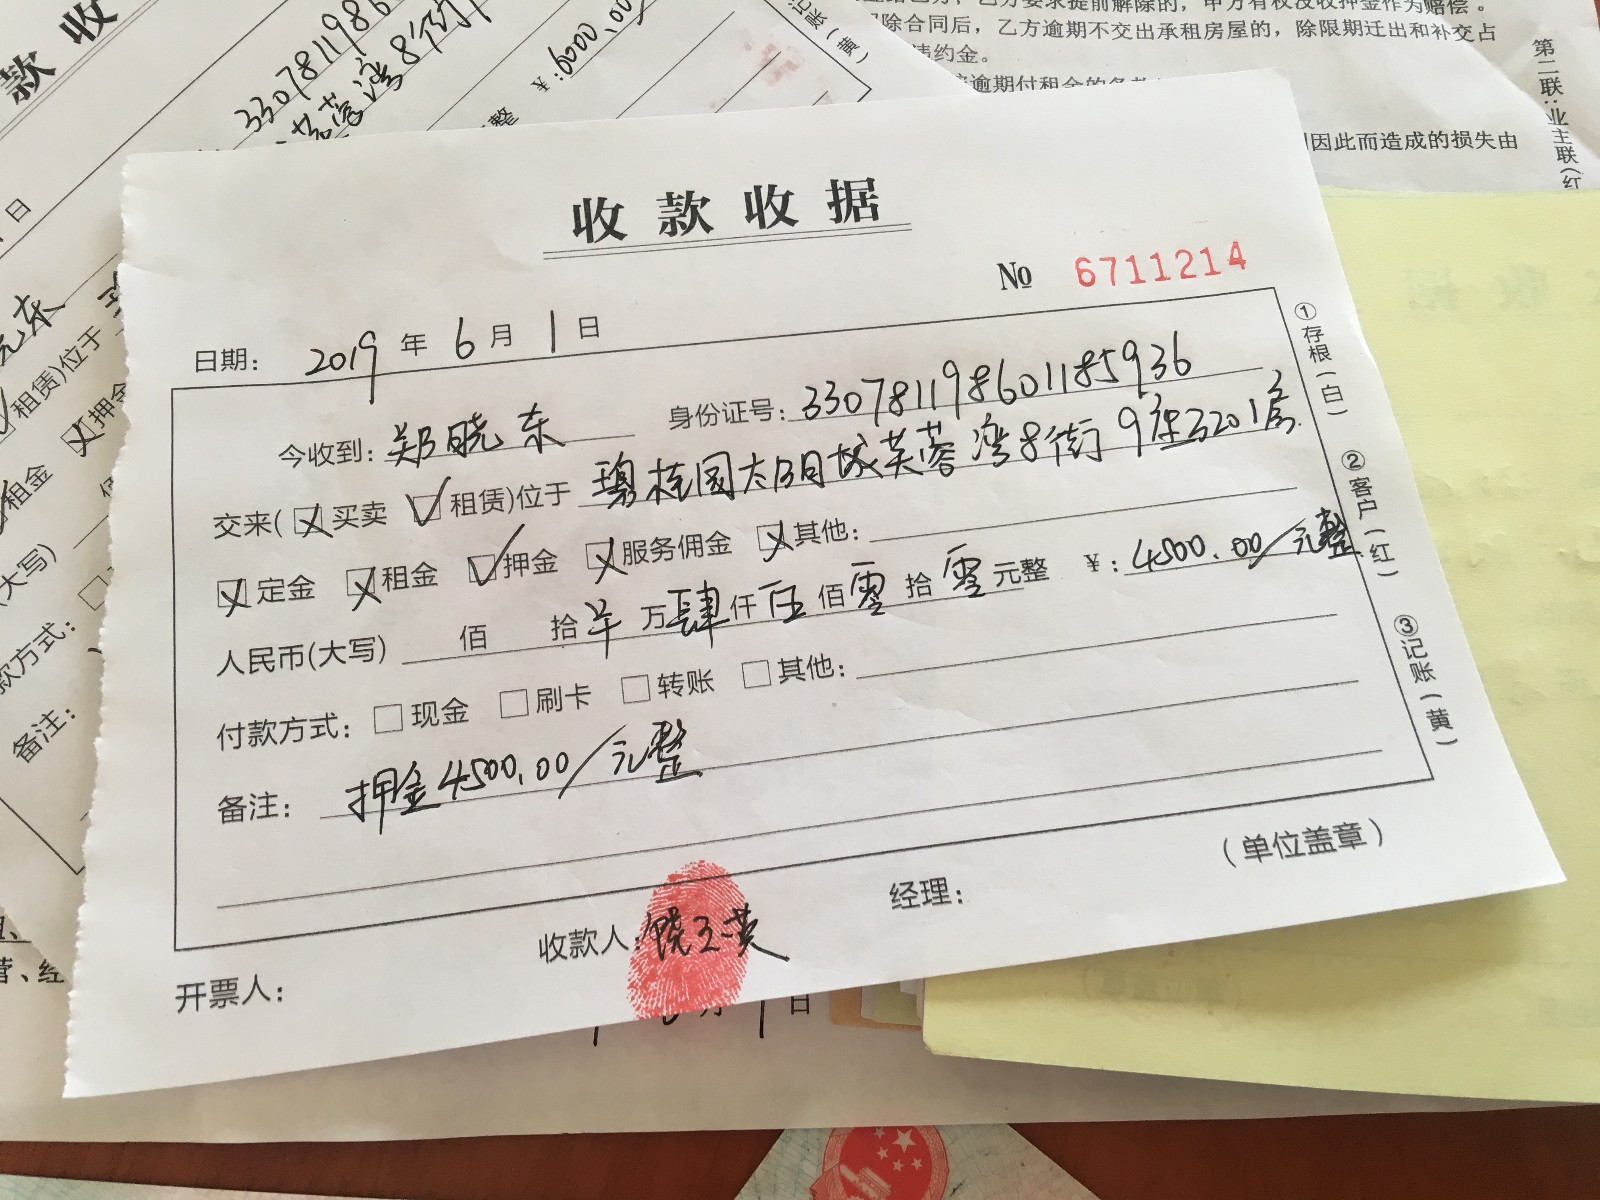 收款收据
№ 6711214
日期: 2019 年 6 月 1 日
今收到: 郑晓东 身份证号: 330781198601185936
交来( 买卖 租赁)位于 碧桂园太阳城芙蓉湾8街9座3201房
定金 租金 押金 服务佣金 其他:
人民币(大写) 佰 拾 万 肆 仟 伍 佰 零 拾 零 元整 ¥: 4500.00/元整
付款方式: 现金 刷卡 转账 其他:
备注: 押金4500.00/元整
(单位盖章)
经理:
收款人: 饶玉英
开票人:
①存根(白)
②客户(红)
③记账(黄)
款收
3307811986
芙蓉湾8街
整 ¥:6000.00
记账(黄)
日
租赁)位于
押金
租金
(大写)
款方式:
备注:
乙方要求提前解除的,甲方有权没收押金作为赔偿。
除合同后,乙方逾期不交出承租房屋的,除限期迁出和补交占
违约金。
逾期付租金的
因此而造成的损失由
第二联:业主联(红
营、经
日